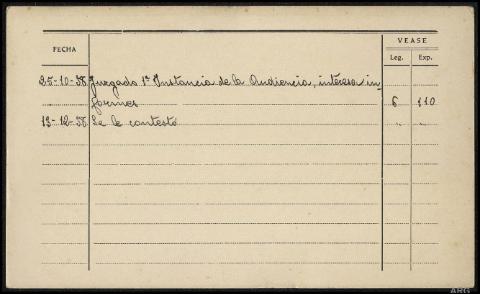 VEASE
FECHA
Leg. Exp.
25-10-58 Juzgado 1ª Instancia de la Audiencia, interesa in-
formes 6 110
13-12-58 Se le contestó " "
ARG